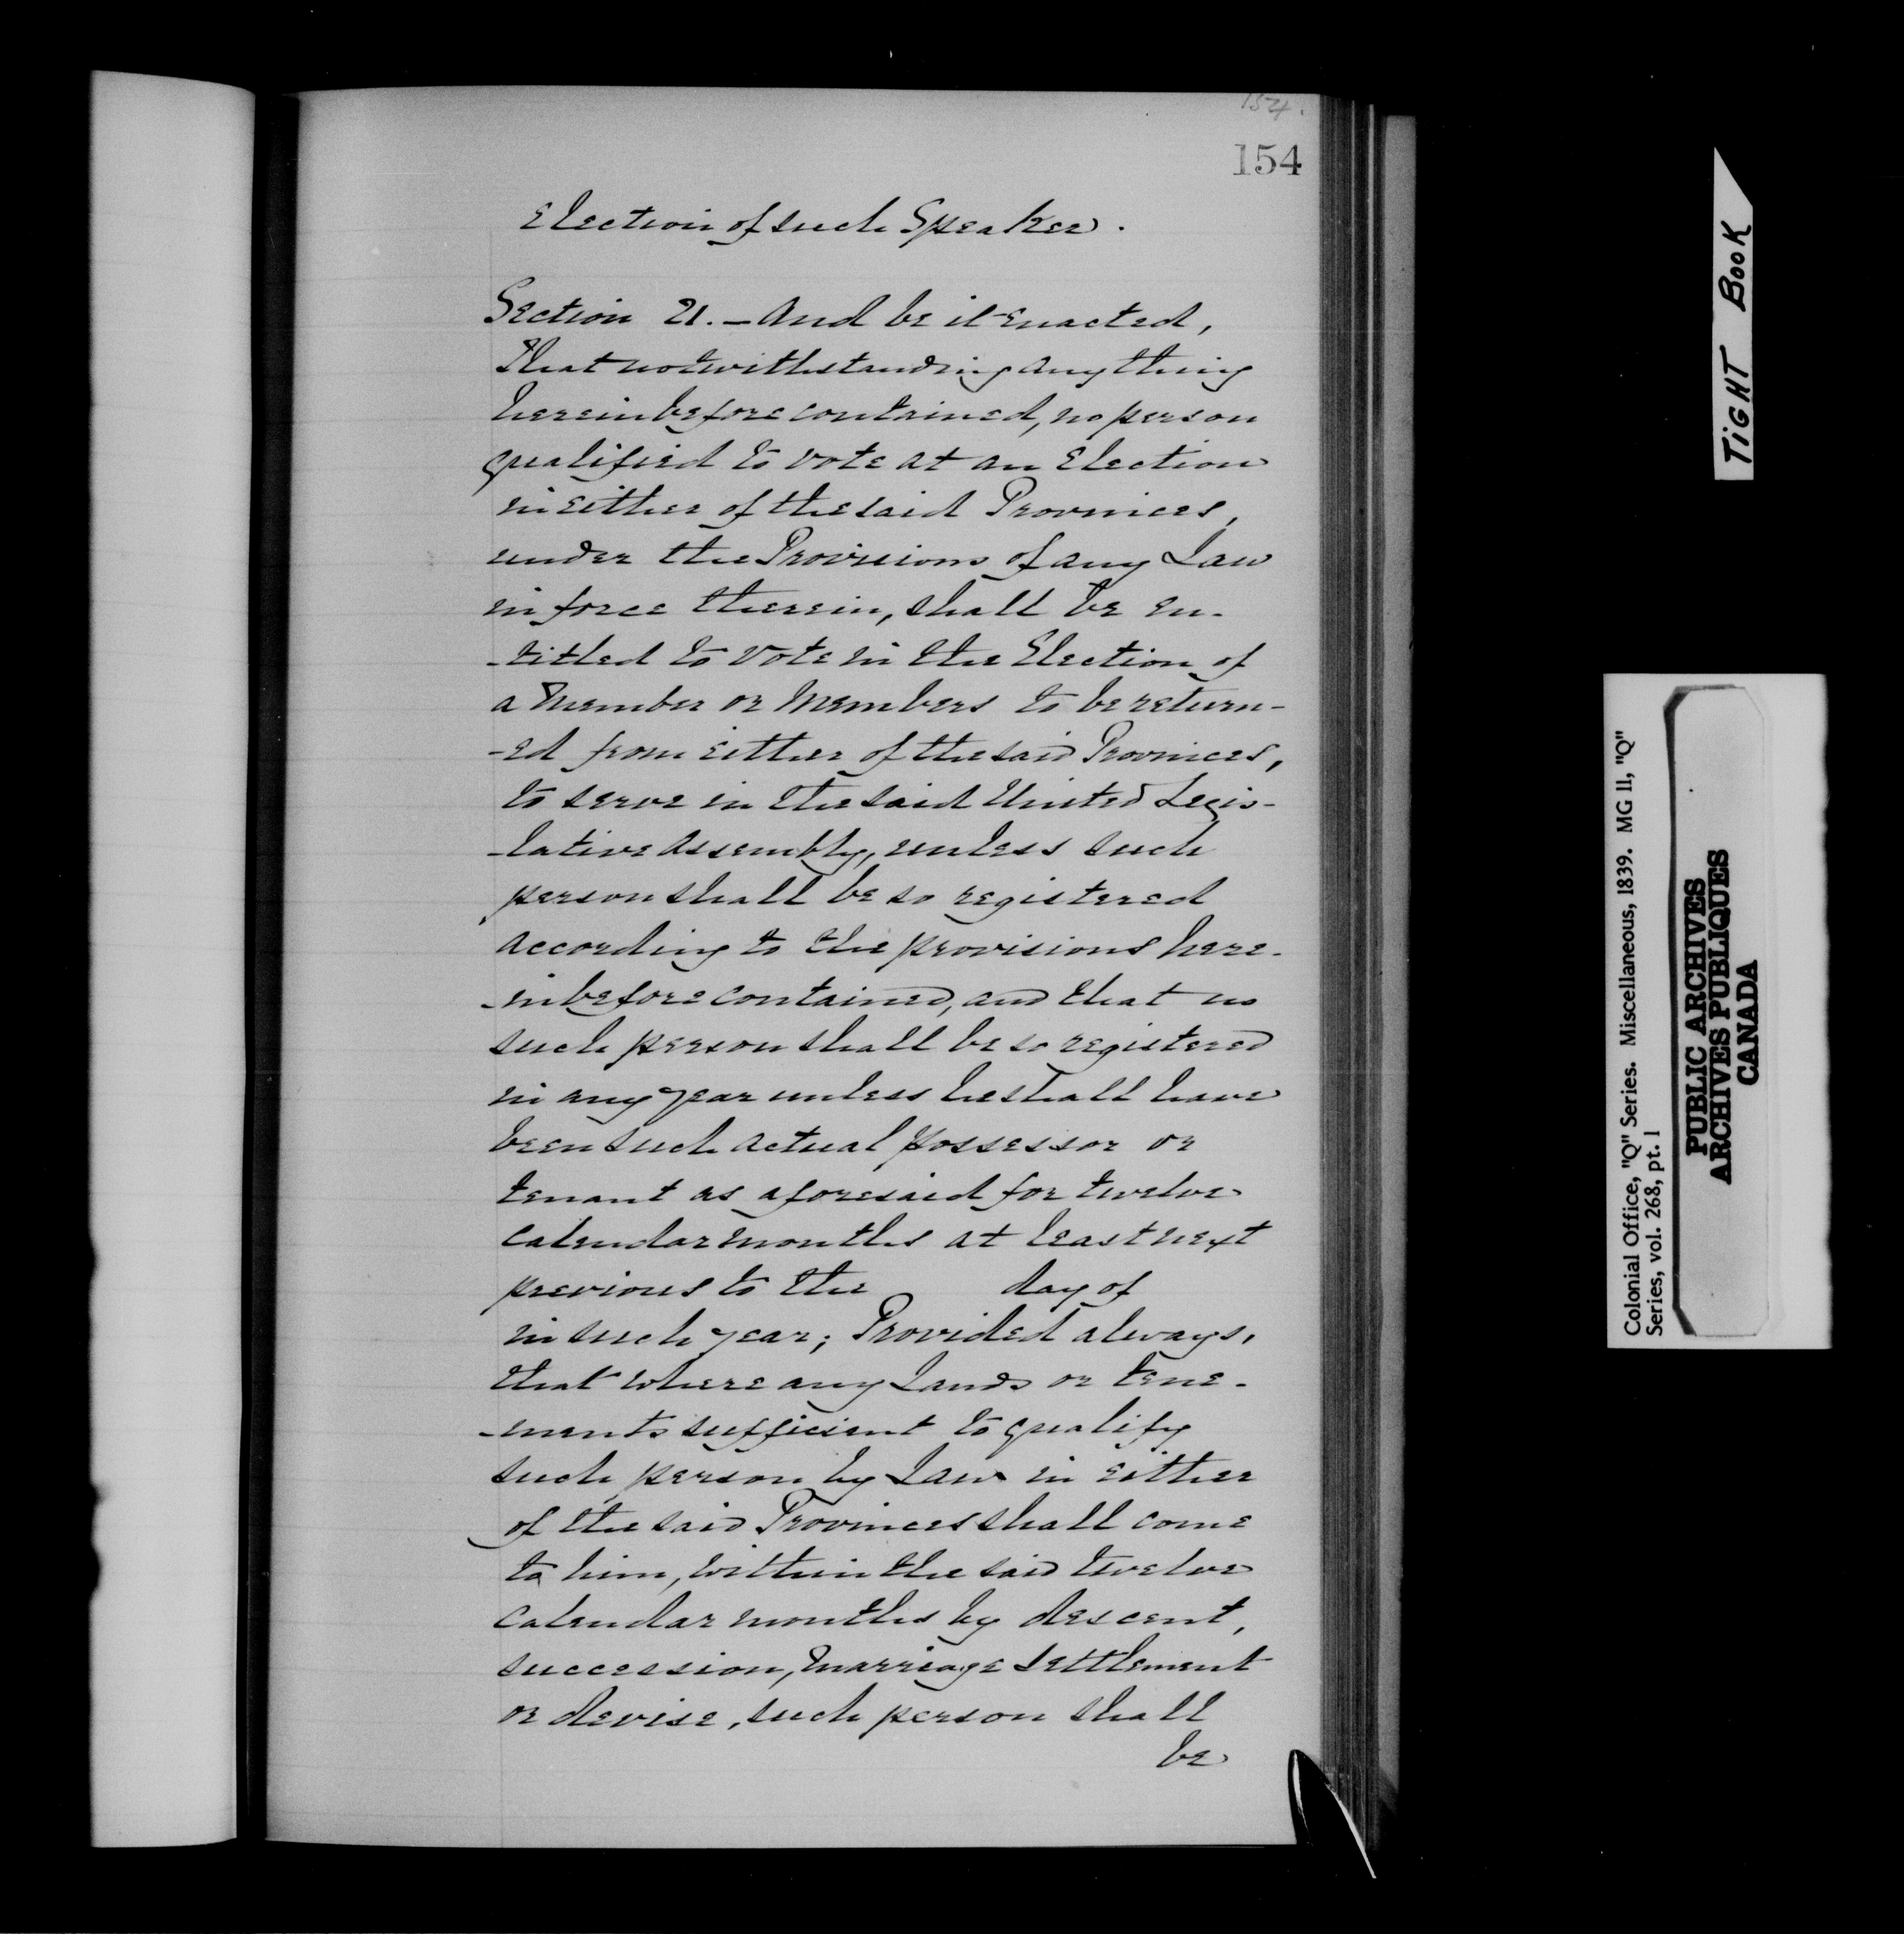 154.
154
Election of such Speaker.
Section 21. - And be it enacted,
that notwithstanding anything
hereinbefore contained, no person
qualified to vote at an Election
in either of the said Provinces,
under the Provisions of any Law
in force therein, shall be en-
-titled to vote in the Election of
a Member or Members to be return-
-ed from either of the said Provinces,
to serve in the said United Legis-
-lative Assembly, unless such
person shall be so registered
according to the provisions here-
-inbefore contained, and that no
such person shall be so registered
in any year unless he shall have
been such actual possessor or
tenant as aforesaid for twelve
calendar months at least next
previous to the day of
in such year; Provided always,
that where any Lands or tene-
-ments sufficient to qualify
such person by Law in either
of the said Provinces shall come
to him, within the said twelve
calendar months by descent,
succession, marriage settlement
or devise, such person shall
be
TIGHT BOOK
Colonial Office, "Q" Series. Miscellaneous, 1839. MG 11, "Q"
Series, vol. 268, pt. 1
PUBLIC ARCHIVES
ARCHIVES PUBLIQUES
CANADA